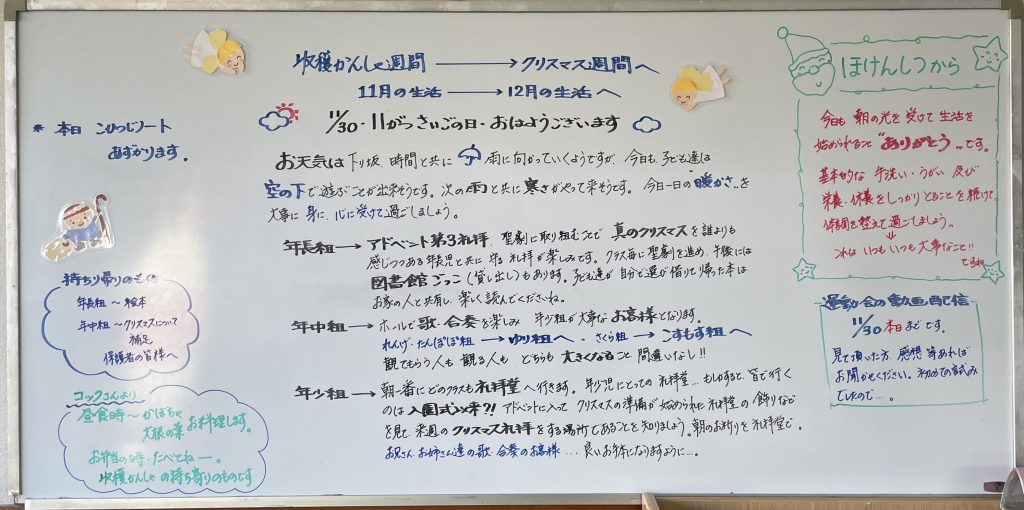 収穫かんしゃ週間 → クリスマス週間へ
11月の生活 → 12月の生活へ
11/30・11がつさいごの日・おはようございます
お天気は下り坂、時間と共に 雨に向かっていくようですが、今日も、子ども達は
空の下で遊ぶことが出来そうです。次の雨と共に寒さがやって来そうです。今日一日の暖かさ、を
大事に身に、心に受けて過ごしましょう。
年長組→アドベント第3礼拝、聖劇に取り組むことで真のクリスマスを誰よりも
感じつつある年長児と共に守る礼拝が楽しみです。クラス毎に聖劇を進め、午後には
図書館ごっこ(貸し出し)もあります。子ども達が自分で選び借りて帰った本は
お家の人と共有し、楽しく読んでくださいね。
年中組→ホールで歌・合奏を楽しみ 年少組が大事なお客様となります。
れんげ・たんぽぽ組→ゆり組へ・さくら組→こすもす組へ
観てもらう人も観る人も どちらも大きくなること間違いなし!!
年少組→朝一番にどのクラスも礼拝堂へ行きます。年少児にとっての礼拝堂…もしかすると、皆で行く
のは入園式以来?! アドベントに入って クリスマスの準備が始められた礼拝堂の飾りなど
を見て、来週のクリスマス礼拝をする場所であることを知りましょう。朝のお祈りを礼拝堂で。
お兄さんお姉さん達の歌・合奏のお客様…良いお体になりますように…。
* 本日 こひつじノート
あずかります。
持ち帰りのもの
年長組〜絵本
年中組〜クリスマスについて
補足
保護者の皆様へ
コックさんより
昼食時〜かぼちゃ
大根の葉 お料理します。
お弁当の時・たべてねー。
収穫かんしゃの持ち寄りのものです
ほけんしつから
今日も朝の光を受けて生活を
始められること"ありがとう"です。
基本的な手洗い・うがい 及び
栄養・休養をしっかりとることを続けて
体調を整えて過ごしましょう。
これはいつもいつも大事なこと!!
ですね
運動会の動画配信
11/30 本日までです。
見て頂いた方、感想等あれば
お聞かせください。初めての試み
でしたので…。